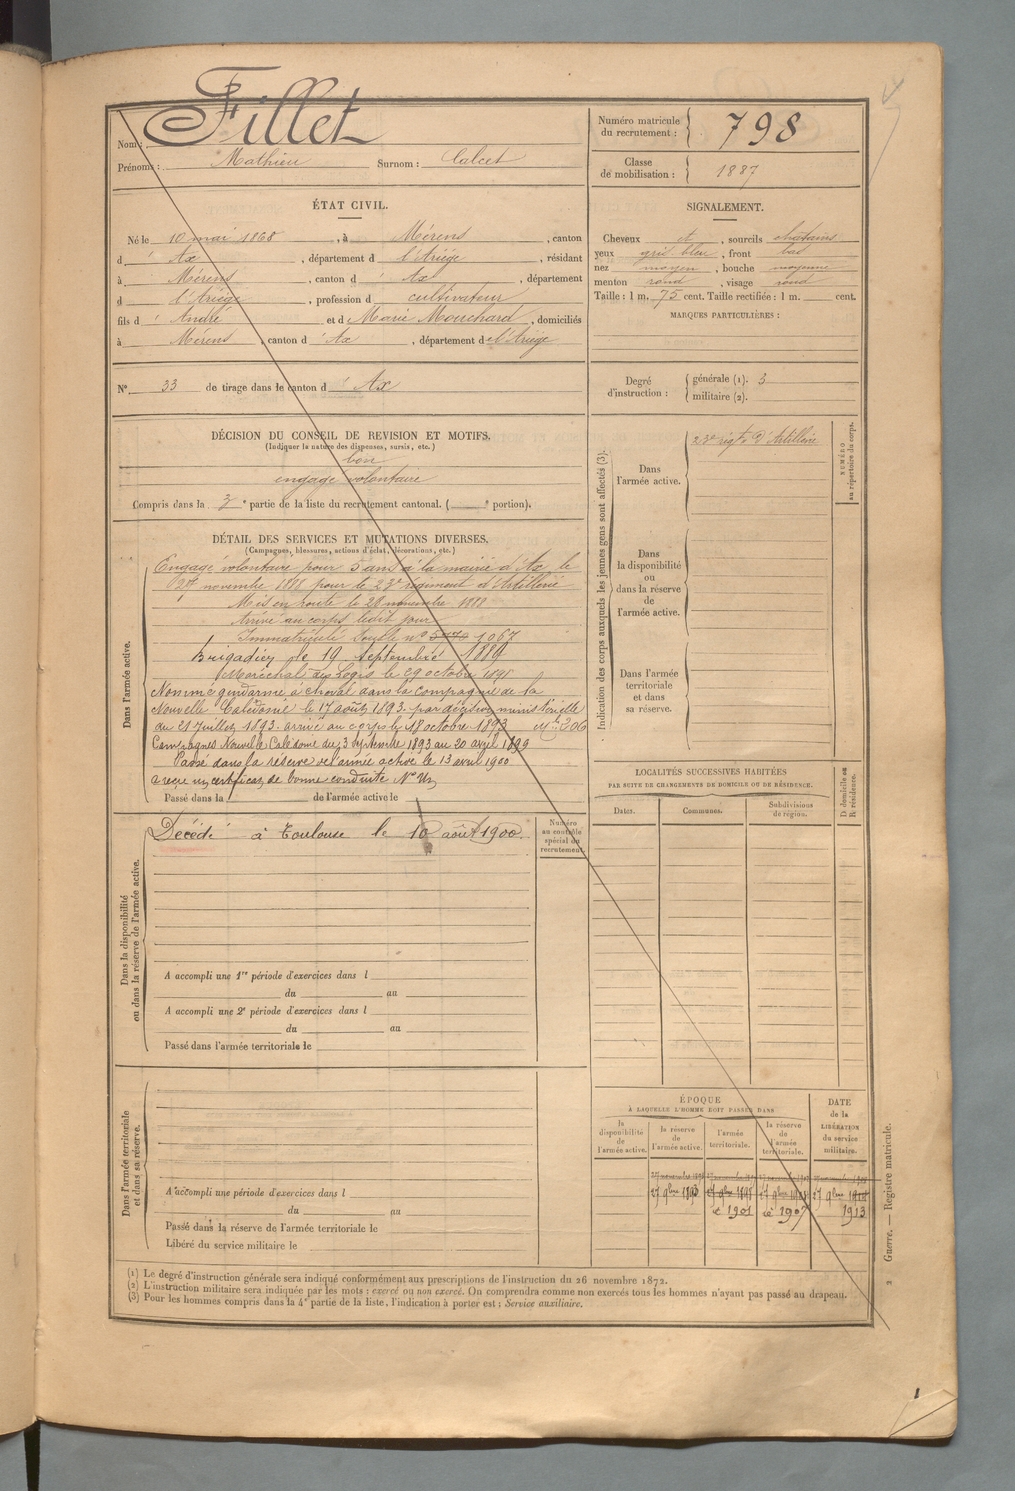 Nom : Fillet
Prénoms : Mathieu Surnom : Calcet
Numéro matricule du recrutement : 798
Classe de mobilisation : 1887
ÉTAT CIVIL.
Né le 10 mai 1868, à Mérens, canton
d' Ax, département d l'Ariège, résidant
à Mérens, canton d' Ax, département
d l'Ariège, profession d cultivateur
fils d' André et d Marie Mouchard, domiciliés
à Mérens, canton d' Ax, département d el'Ariège
SIGNALEMENT.
Cheveux et, sourcils chatains
yeux gris bleu, front bas
nez moyen, bouche moyenne
menton rond, visage rond
Taille : 1 m. 75 cent. Taille rectifiée : 1 m. cent.
MARQUES PARTICULIÈRES :
N° 33 de tirage dans le canton d' Ax
Degré d'instruction : générale (1). 3
militaire (2).
DÉCISION DU CONSEIL DE REVISION ET MOTIFS.
(Indiquer la nature des dispenses, sursis, etc.)
bon
engagé volontaire
Compris dans la 3e partie de la liste du recrutement cantonal. ( e portion).
DÉTAIL DES SERVICES ET MUTATIONS DIVERSES.
(Campagnes, blessures, actions d'éclat, décorations, etc.)
Dans l'armée active.
Engagé volontaire pour 5 ans à la mairie d'Ax le
novembre 1888 pour le 23e régiment d'Artillerie
Mis en route le 28 novembre 1888
Arrivé au corps ledit jour
Immatriculé sous le n° 1067
Brigadier le 19 septembre 1889
Maréchal des Logis le 29 octobre
Nommé gendarme à cheval dans la compagnie de la
Nouvelle Calédonie le 17 août 1893 par décision ministérielle
du 21 Juillet 1893. arrivé au corps le 18 octobre 1893 Mle 206
Campagnes Nouvelle Calédonie du 3 septembre 1893 au 20 avril 1899
Passé dans la réserve de l'armée active le 13 avril 1900
a reçu un certificat de bonne conduite
Passé dans la de l'armée active le
Indication des corps auxquels les jeunes gens sont affectés (3).
Dans l'armée active.
23e rigt d'Artillerie
Dans la disponibilité ou dans la réserve de l'armée active.
Dans l'armée territoriale et dans sa réserve.
NUMÉRO au répertoire du corps.
LOCALITÉS SUCCESSIVES HABITÉES
PAR SUITE DE CHANGEMENTS DE DOMICILE OU DE RÉSIDENCE.
Dates. Communes. Subdivisions de région.
D domicile ou R résidence.
Dans la disponibilité ou dans la réserve de l'armée active.
Décédé à Toulouse le 10 août 1900.
Numéro au contrôle spécial du recrutement.
A accompli une 1re période d'exercices dans l
du au
A accompli une 2e période d'exercices dans l
du au
Passé dans l'armée territoriale le
Dans l'armée territoriale et dans sa réserve.
A accompli une période d'exercices dans l
du au
Passé dans la réserve de l'armée territoriale le
Libéré du service militaire le
ÉPOQUE
À LAQUELLE L'HOMME DOIT PASSER DANS
la disponibilité de l'armée active.
la réserve de l'armée active.
l'armée territoriale.
la réserve de l'armée territoriale.
DATE de la LIBÉRATION du service militaire.
1901 1907 1913
(1) Le degré d'instruction générale sera indiqué conformément aux prescriptions de l'instruction du 26 novembre 1872.
(2) L'instruction militaire sera indiquée par les mots : exercé ou non exercé. On comprendra comme non exercés tous les hommes n'ayant pas passé au drapeau.
(3) Pour les hommes compris dans la 4e partie de la liste, l'indication à porter est : Service auxiliaire.
2 Guerre. — Registre matricule.